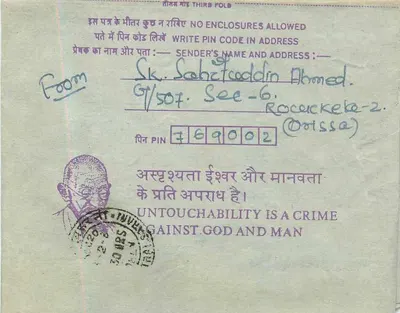 तीसरा मोड़ THIRD FOLD
इस पत्र के भीतर कुछ न रखिए NO ENCLOSURES ALLOWED
पते में पिन कोड लिखें WRITE PIN CODE IN ADDRESS
प्रेषक का नाम और पता :— SENDER'S NAME AND ADDRESS :—
From
Sk. Ahmed.
G/507. Sec-6.
Rourkela-2.
(Orissa)
पिन PIN 769002
अस्पृश्यता ईश्वर और मानवता
के प्रति अपराध है।
UNTOUCHABILITY IS A CRIME
AGAINST GOD AND MAN